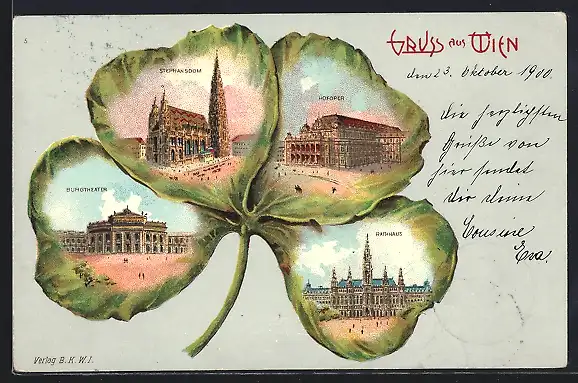 GRUSS AUS WIEN
den 23. Oktober 1900.
STEPHANSDOM
HOFOPER
BURGTHEATER
RATHHAUS
die herzlichsten
Grüße von
hier sendet
dir deine
Cousine
Eva.
Verlag B. K. W. I.